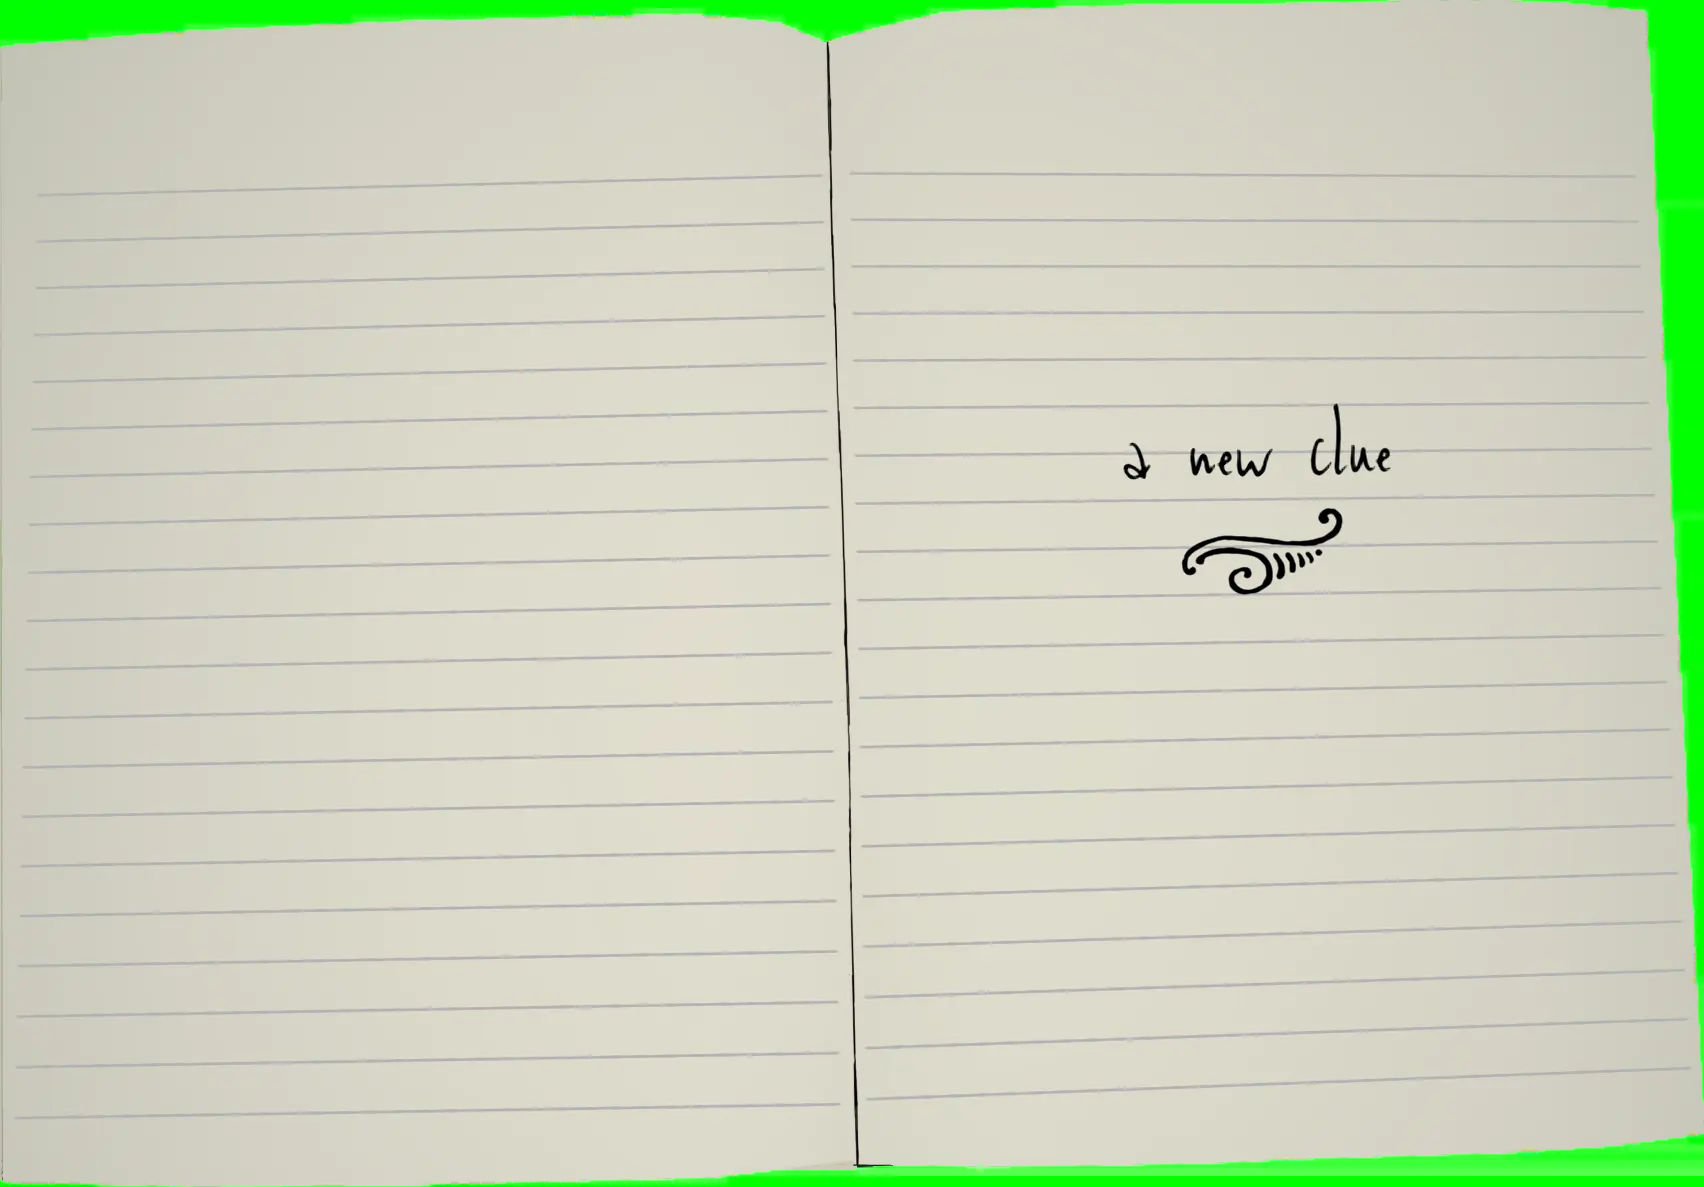 a new clue